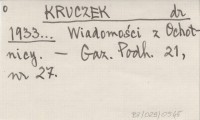 KRUCZEK dr
1933... Wiadomości z Ochot-
nicy. — Gaz. Podh. 21,
nr 27.